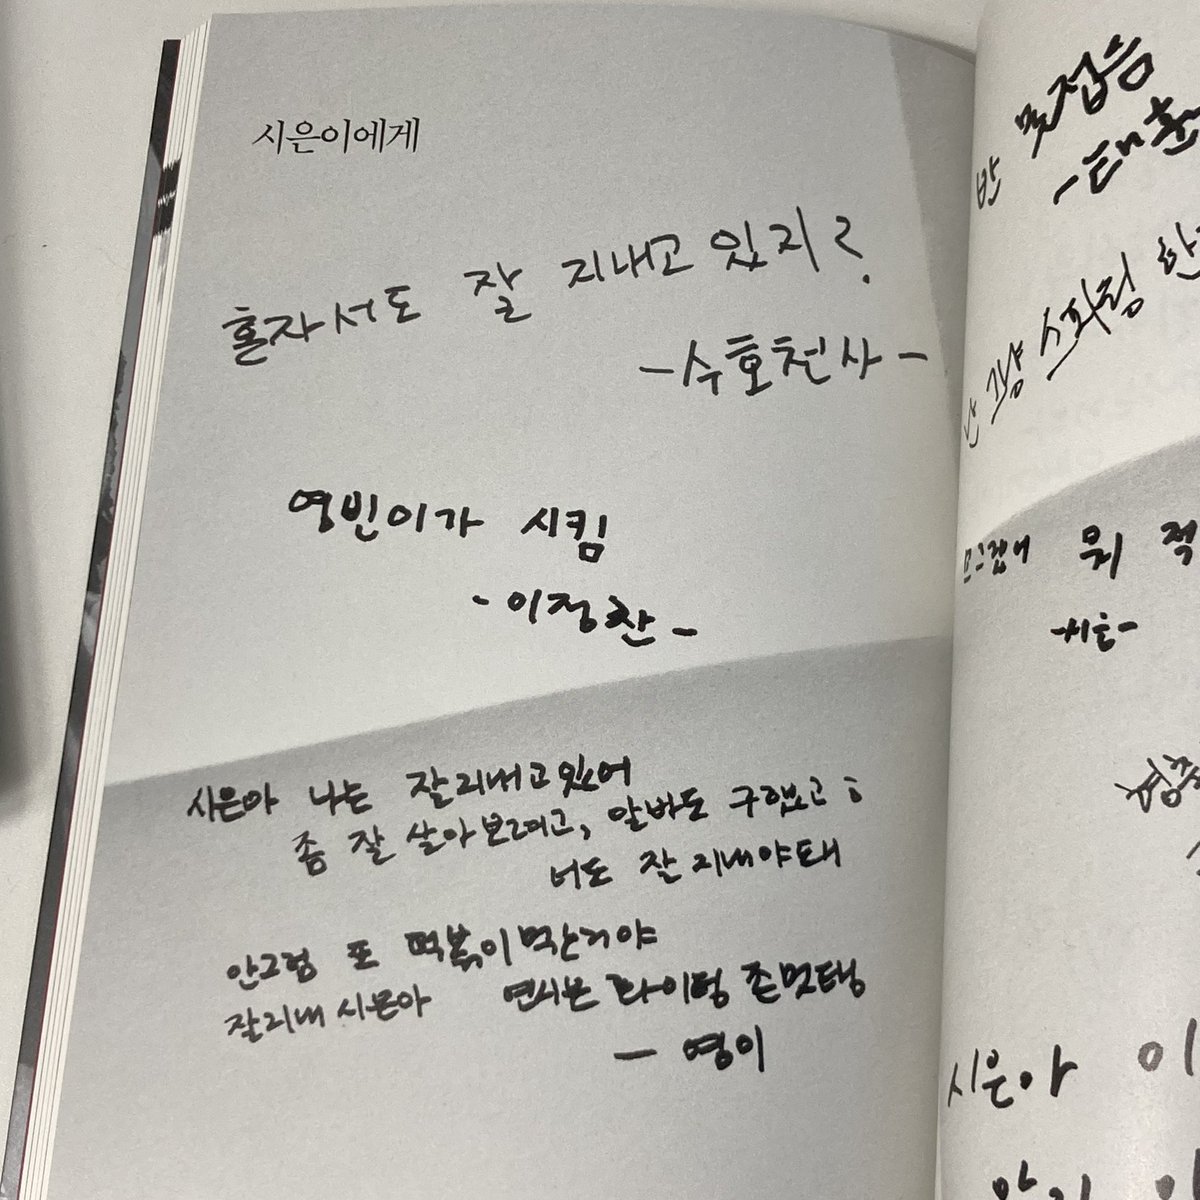 시은이에게
혼자서도 잘 지내고 있지?
-수호천사-
영빈이가 시킴
-이정찬-
시은아 나는 잘지내고있어
좀 잘 살아보려고, 알바도 구했고;
너도 잘 지내야돼
안그럼 또 떡볶이먹잔거야
잘지내 시은아
연시은 화이팅
- 영이
못접음
-태훈
스파링 한
뭐 적
-시은-
시은아 이